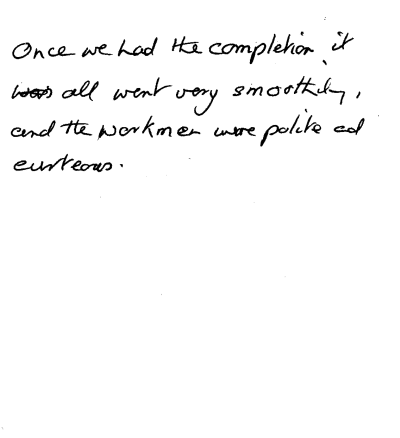 Once we had the completion, it
was all went very smoothly,
and the workmen were polite ad
curteous.